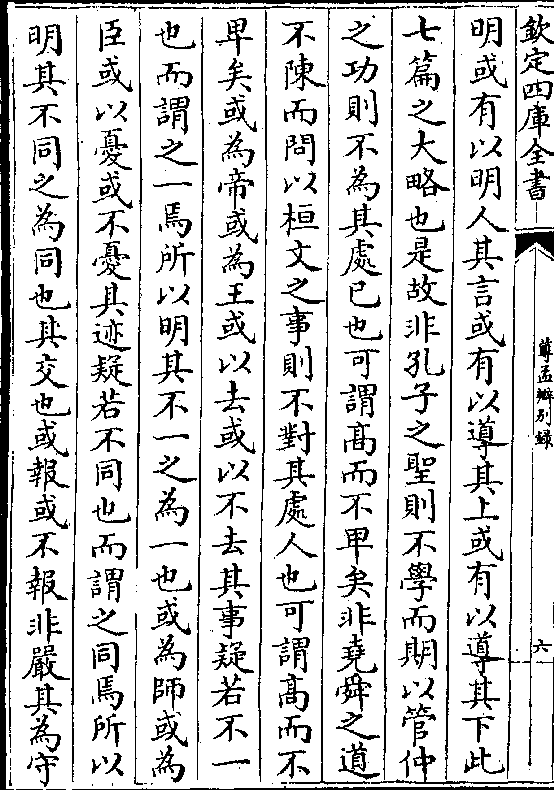 欽定四庫全書
尊孟辨別錄
六
明或有以明人其言或有以導其上或有以導其下此
七篇之大略也是故非孔子之聖則不學而期以管仲
之功則不為其處已也可謂髙而不卑矣非堯舜之道
不陳而問以桓文之事則不對其處人也可謂髙而不
卑矣或為帝或為王或以去或以不去其事疑若不一
也而謂之一焉所以明其不一之為一也或為師或為
臣或以憂或不憂其迹疑若不同也而謂之同焉所以
明其不同之為同也其交也或報或不報非嚴其為守